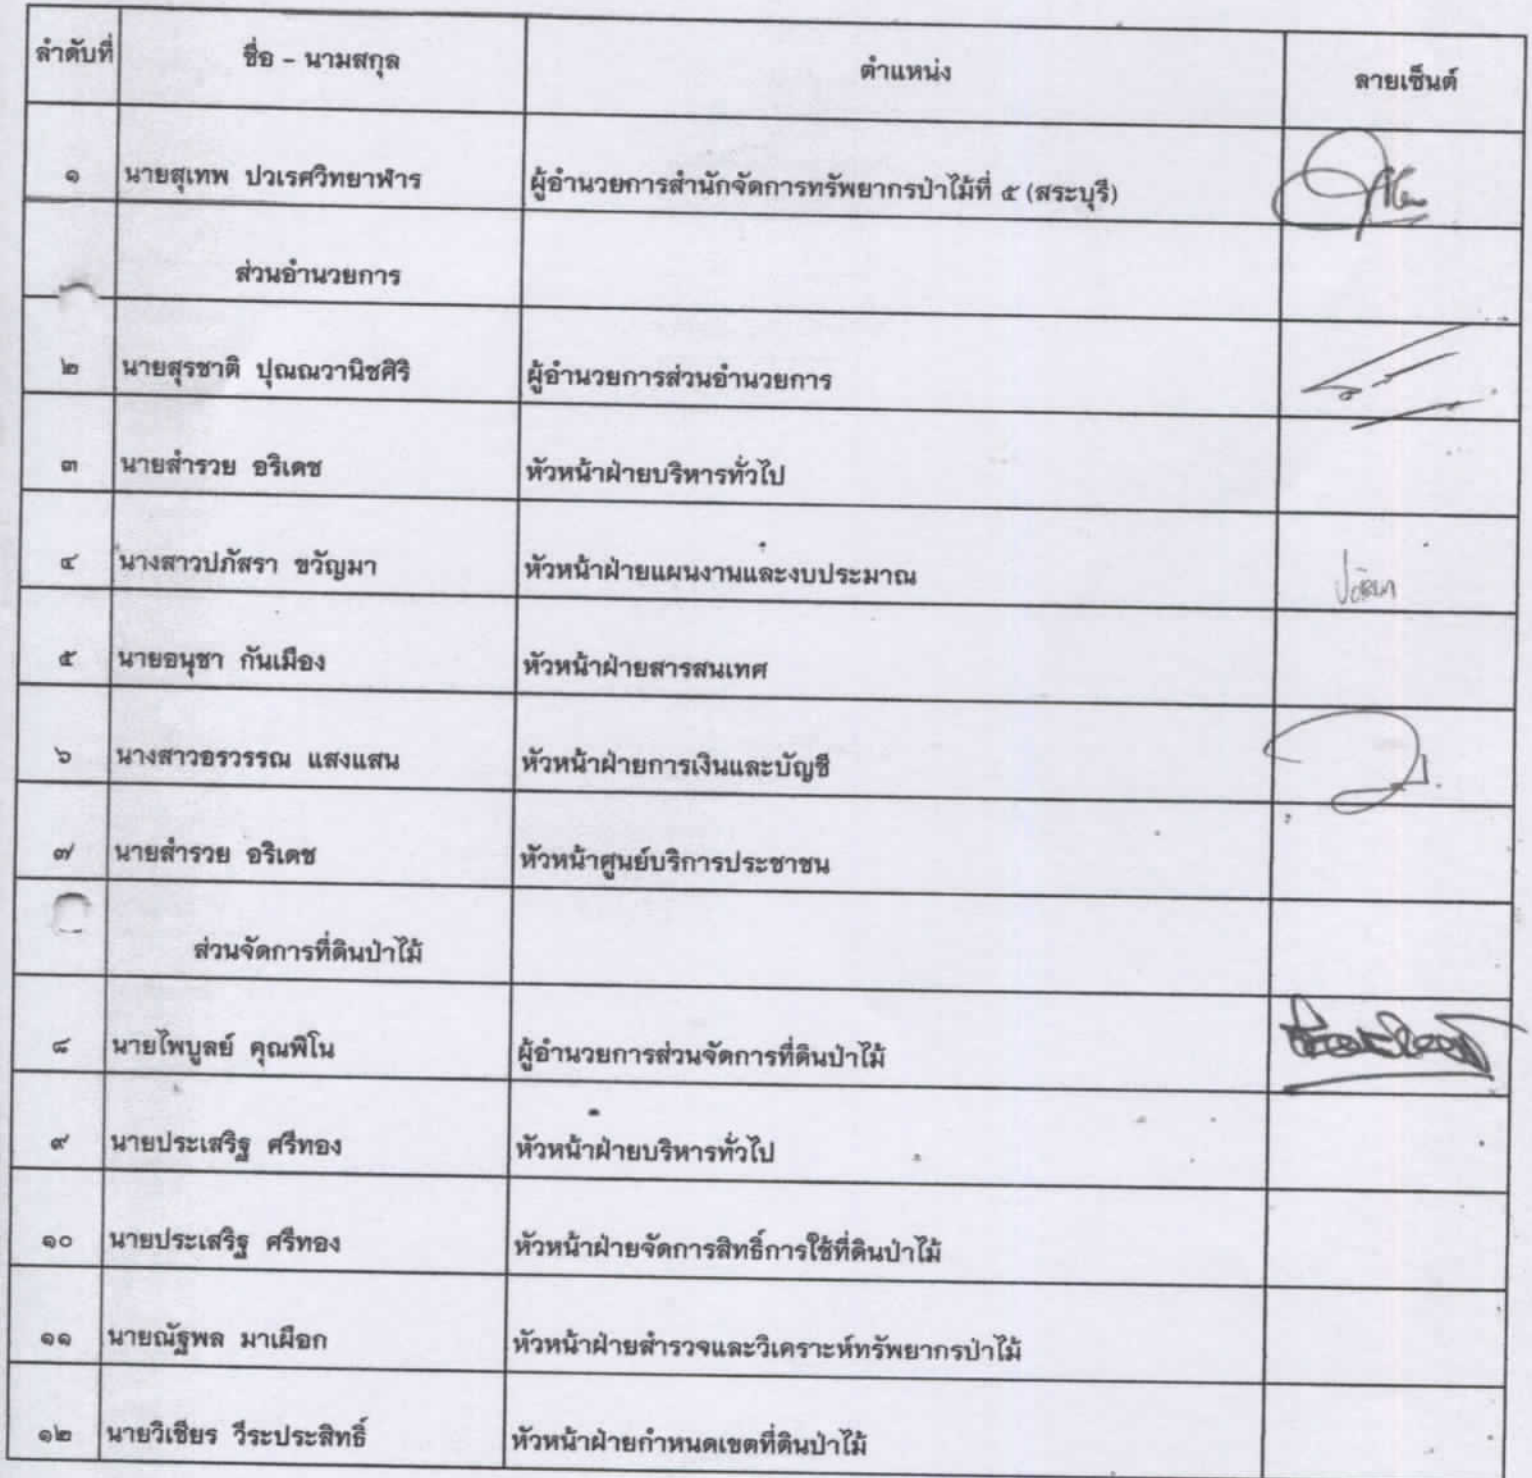 ลำดับที่ ชื่อ - นามสกุล ตำแหน่ง ลายเซ็นต์
๑ นายสุเทพ ปวเรศวิทยาฬาร ผู้อำนวยการสำนักจัดการทรัพยากรป่าไม้ที่ ๕ (สระบุรี)
ส่วนอำนวยการ
๒ นายสุรชาติ ปุณณวานิชศิริ ผู้อำนวยการส่วนอำนวยการ
๓ นายสำรวย อริเดช หัวหน้าฝ่ายบริหารทั่วไป
๔ นางสาวปภัสรา ขวัญมา หัวหน้าฝ่ายแผนงานและงบประมาณ
๕ นายอนุชา กันเมือง หัวหน้าฝ่ายสารสนเทศ
๖ นางสาวอรวรรณ แสงแสน หัวหน้าฝ่ายการเงินและบัญชี
๗ นายสำรวย อริเดช หัวหน้าศูนย์บริการประชาชน
ส่วนจัดการที่ดินป่าไม้
๘ นายไพบูลย์ คุณพิโน ผู้อำนวยการส่วนจัดการที่ดินป่าไม้
๙ นายประเสริฐ ศรีทอง หัวหน้าฝ่ายบริหารทั่วไป
๑๐ นายประเสริฐ ศรีทอง หัวหน้าฝ่ายจัดการสิทธิ์การใช้ที่ดินป่าไม้
๑๑ นายณัฐพล มาเผือก หัวหน้าฝ่ายสำรวจและวิเคราะห์ทรัพยากรป่าไม้
๑๒ นายวิเชียร วีระประสิทธิ์ หัวหน้าฝ่ายกำหนดเขตที่ดินป่าไม้